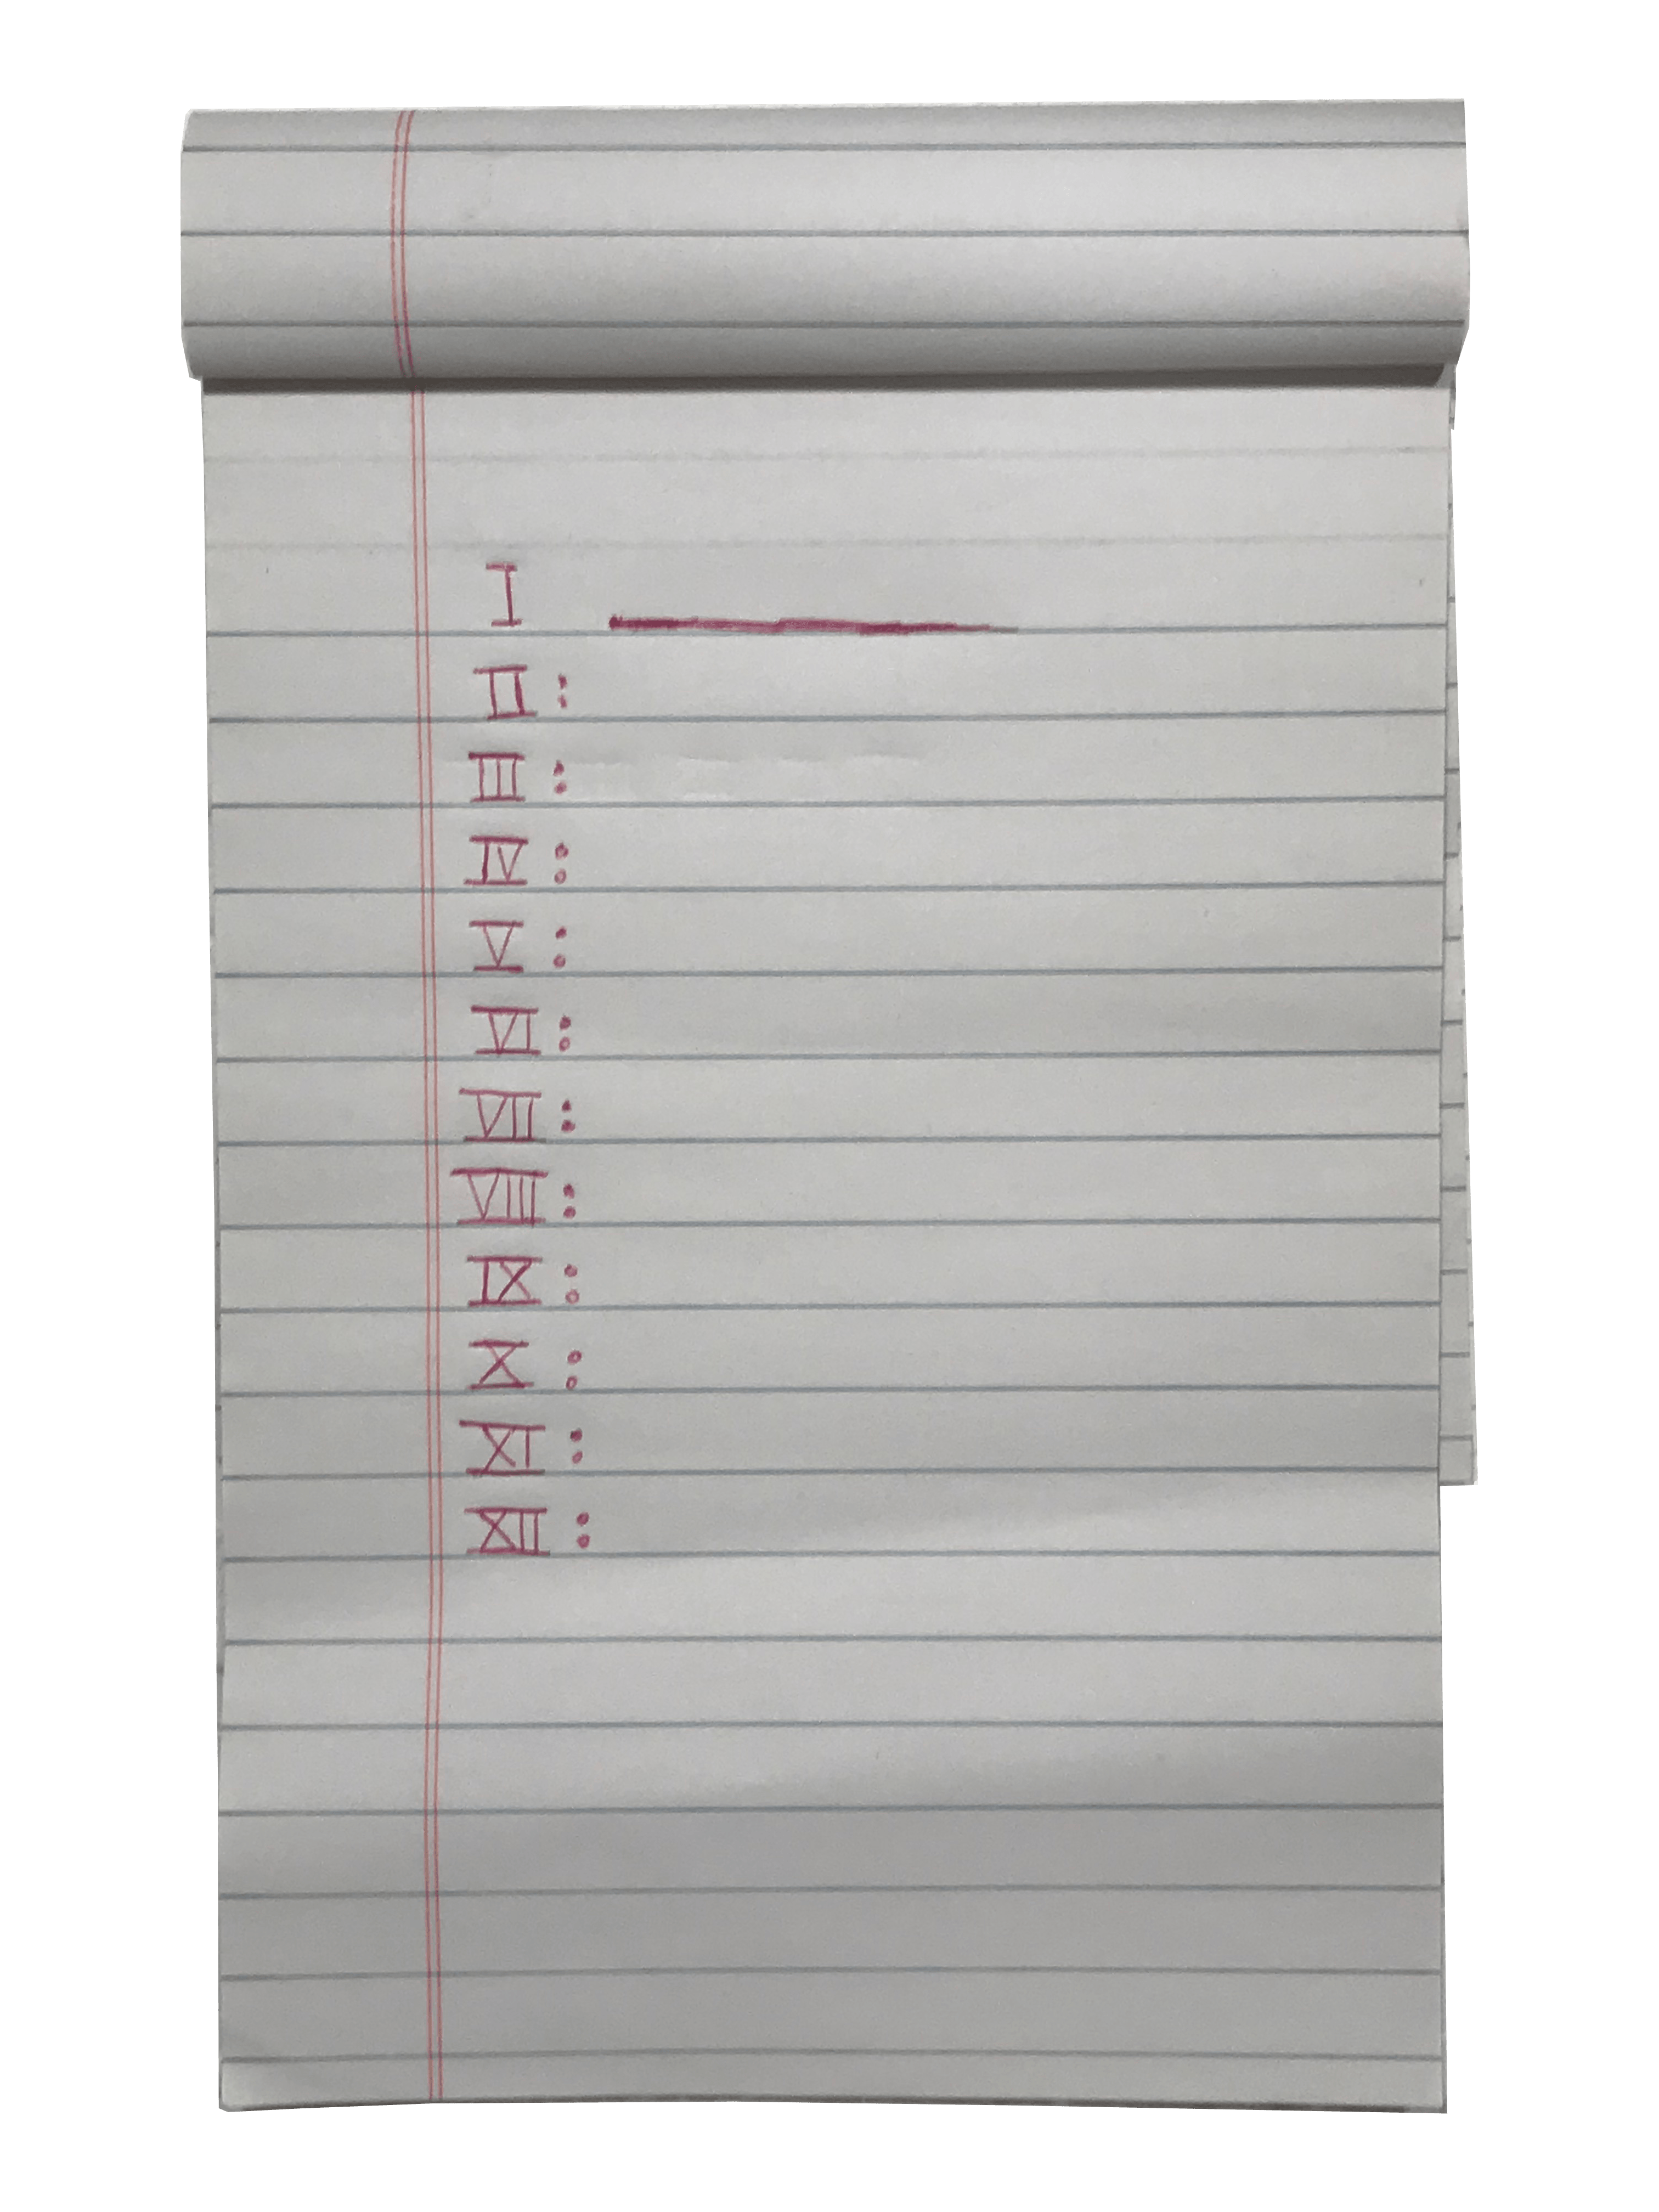 I
II :
III :
IV :
V :
VI :
VII :
VIII :
IX :
X :
XI :
XII :